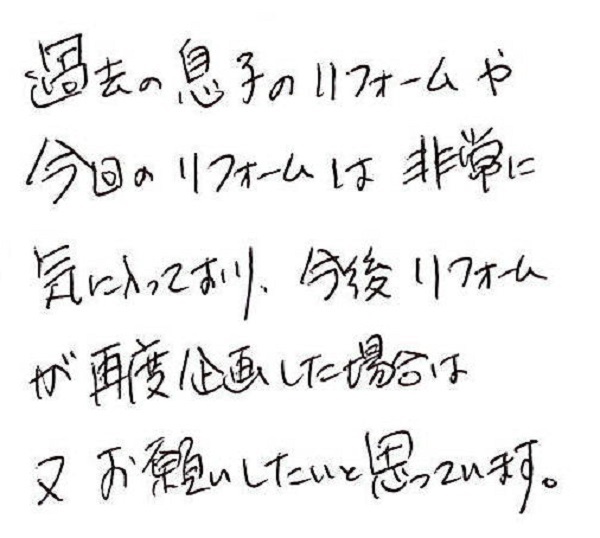 過去の息子のリフォームや
今回のリフォームは非常に
気に入っており、今後リフォーム
が再度企画した場合は
又お願いしたいと思っています。